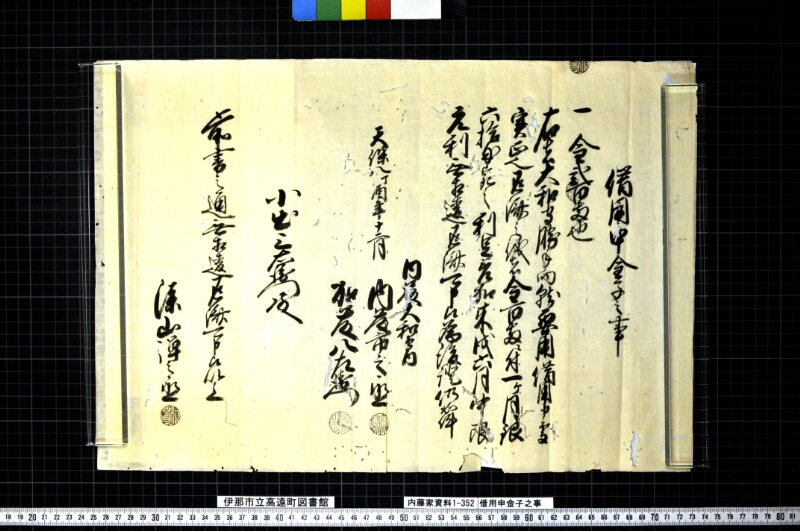 借用申金子之事
一金弐百両也
右者大和守勝手向就要用借用申處
実正也返済之儀者金百両ニ付一ヶ月銀
六拾目宛之利足を加来戌六月中限
元利無相違返済可申候為後証仍如件
天保八丁酉年十二月
内藤大和守内
内藤市之丞
加藤八左衛門
小出三左衛門殿
前書之通無相違返済可申候以上
深山禅之丞
伊那市立高遠町図書館
内藤家資料1-352
借用申金子之事